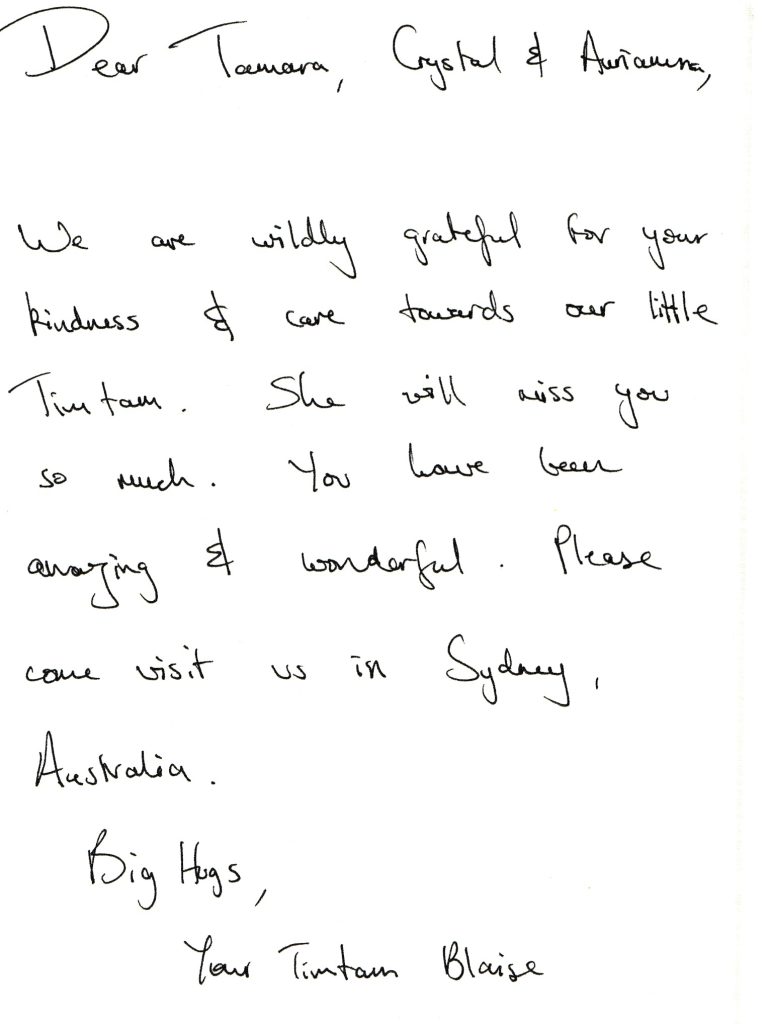 Dear Tamara, Crystal &
We are wildly grateful for your
kindness & care towards our little
Timtam. She will miss you
so much. You have been
amazing & wonderful. Please
come visit us in Sydney,
Australia.
Big Hugs,
Your Timtam Blaise